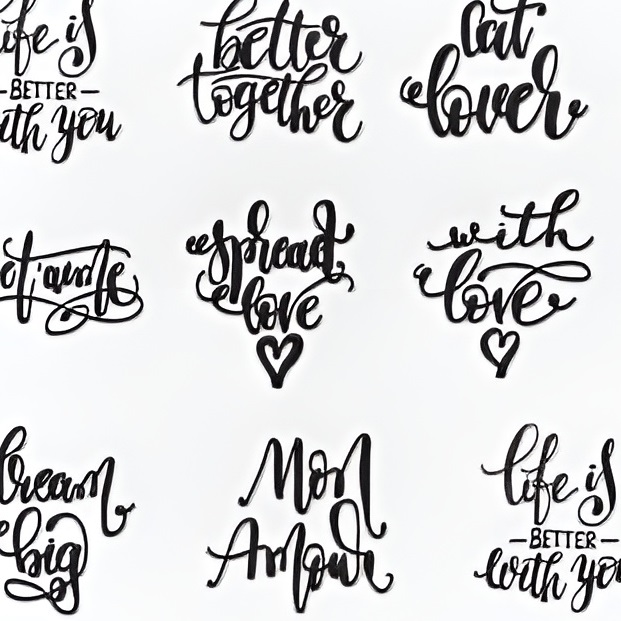 life is
- BETTER -
with you
better
together
cat
lover
t'aime
spread
love
with
love
Dream
big
Mon
Amour
life is
- BETTER -
with you